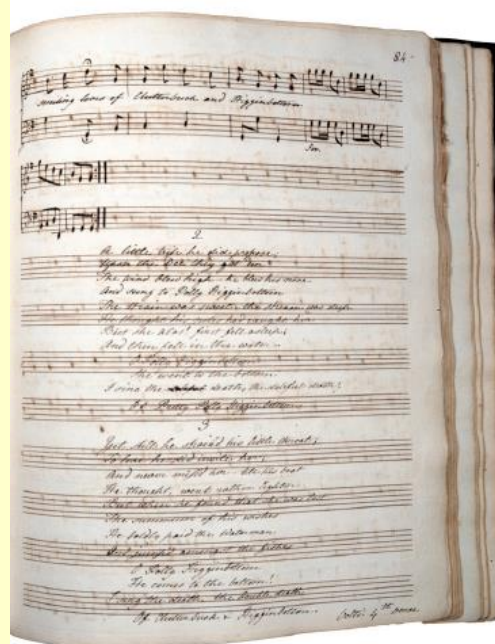 84
melting loves of Clutterbuck and Higginbottom
Sy.
2
A little skiff he did prepare,
Upon the Dee they got in
The wind blew high he blew his nose
And sung to Polly Higginbottom
The strain was sweet the stream was deep
He thought his notes had caught her
But she alas! first fell asleep,
And then fell in the water
O Polly Higginbottom
She went to the bottom
I sing the death, the death,
Of Pretty Polly Higginbottom
3
Yet still he strain'd his little throat,
To love he did invite her,
And never miss'd her — till his boat
He thought, went rather lighter
But when he found that she was lost
The summum of his wishes
He boldly paid the Waterman
And jump'd amongst the fishes
O Polly Higginbottom
I've comes to the bottom!
I sing the death the double death
Of Clutterbuck & Higginbottom. Volti 4th verse